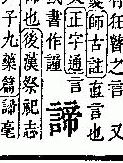 有狂瞽之言 又
師古註直言也
正字通言
書作
諦
也後漢祭祀志
子九藥篇諦毫